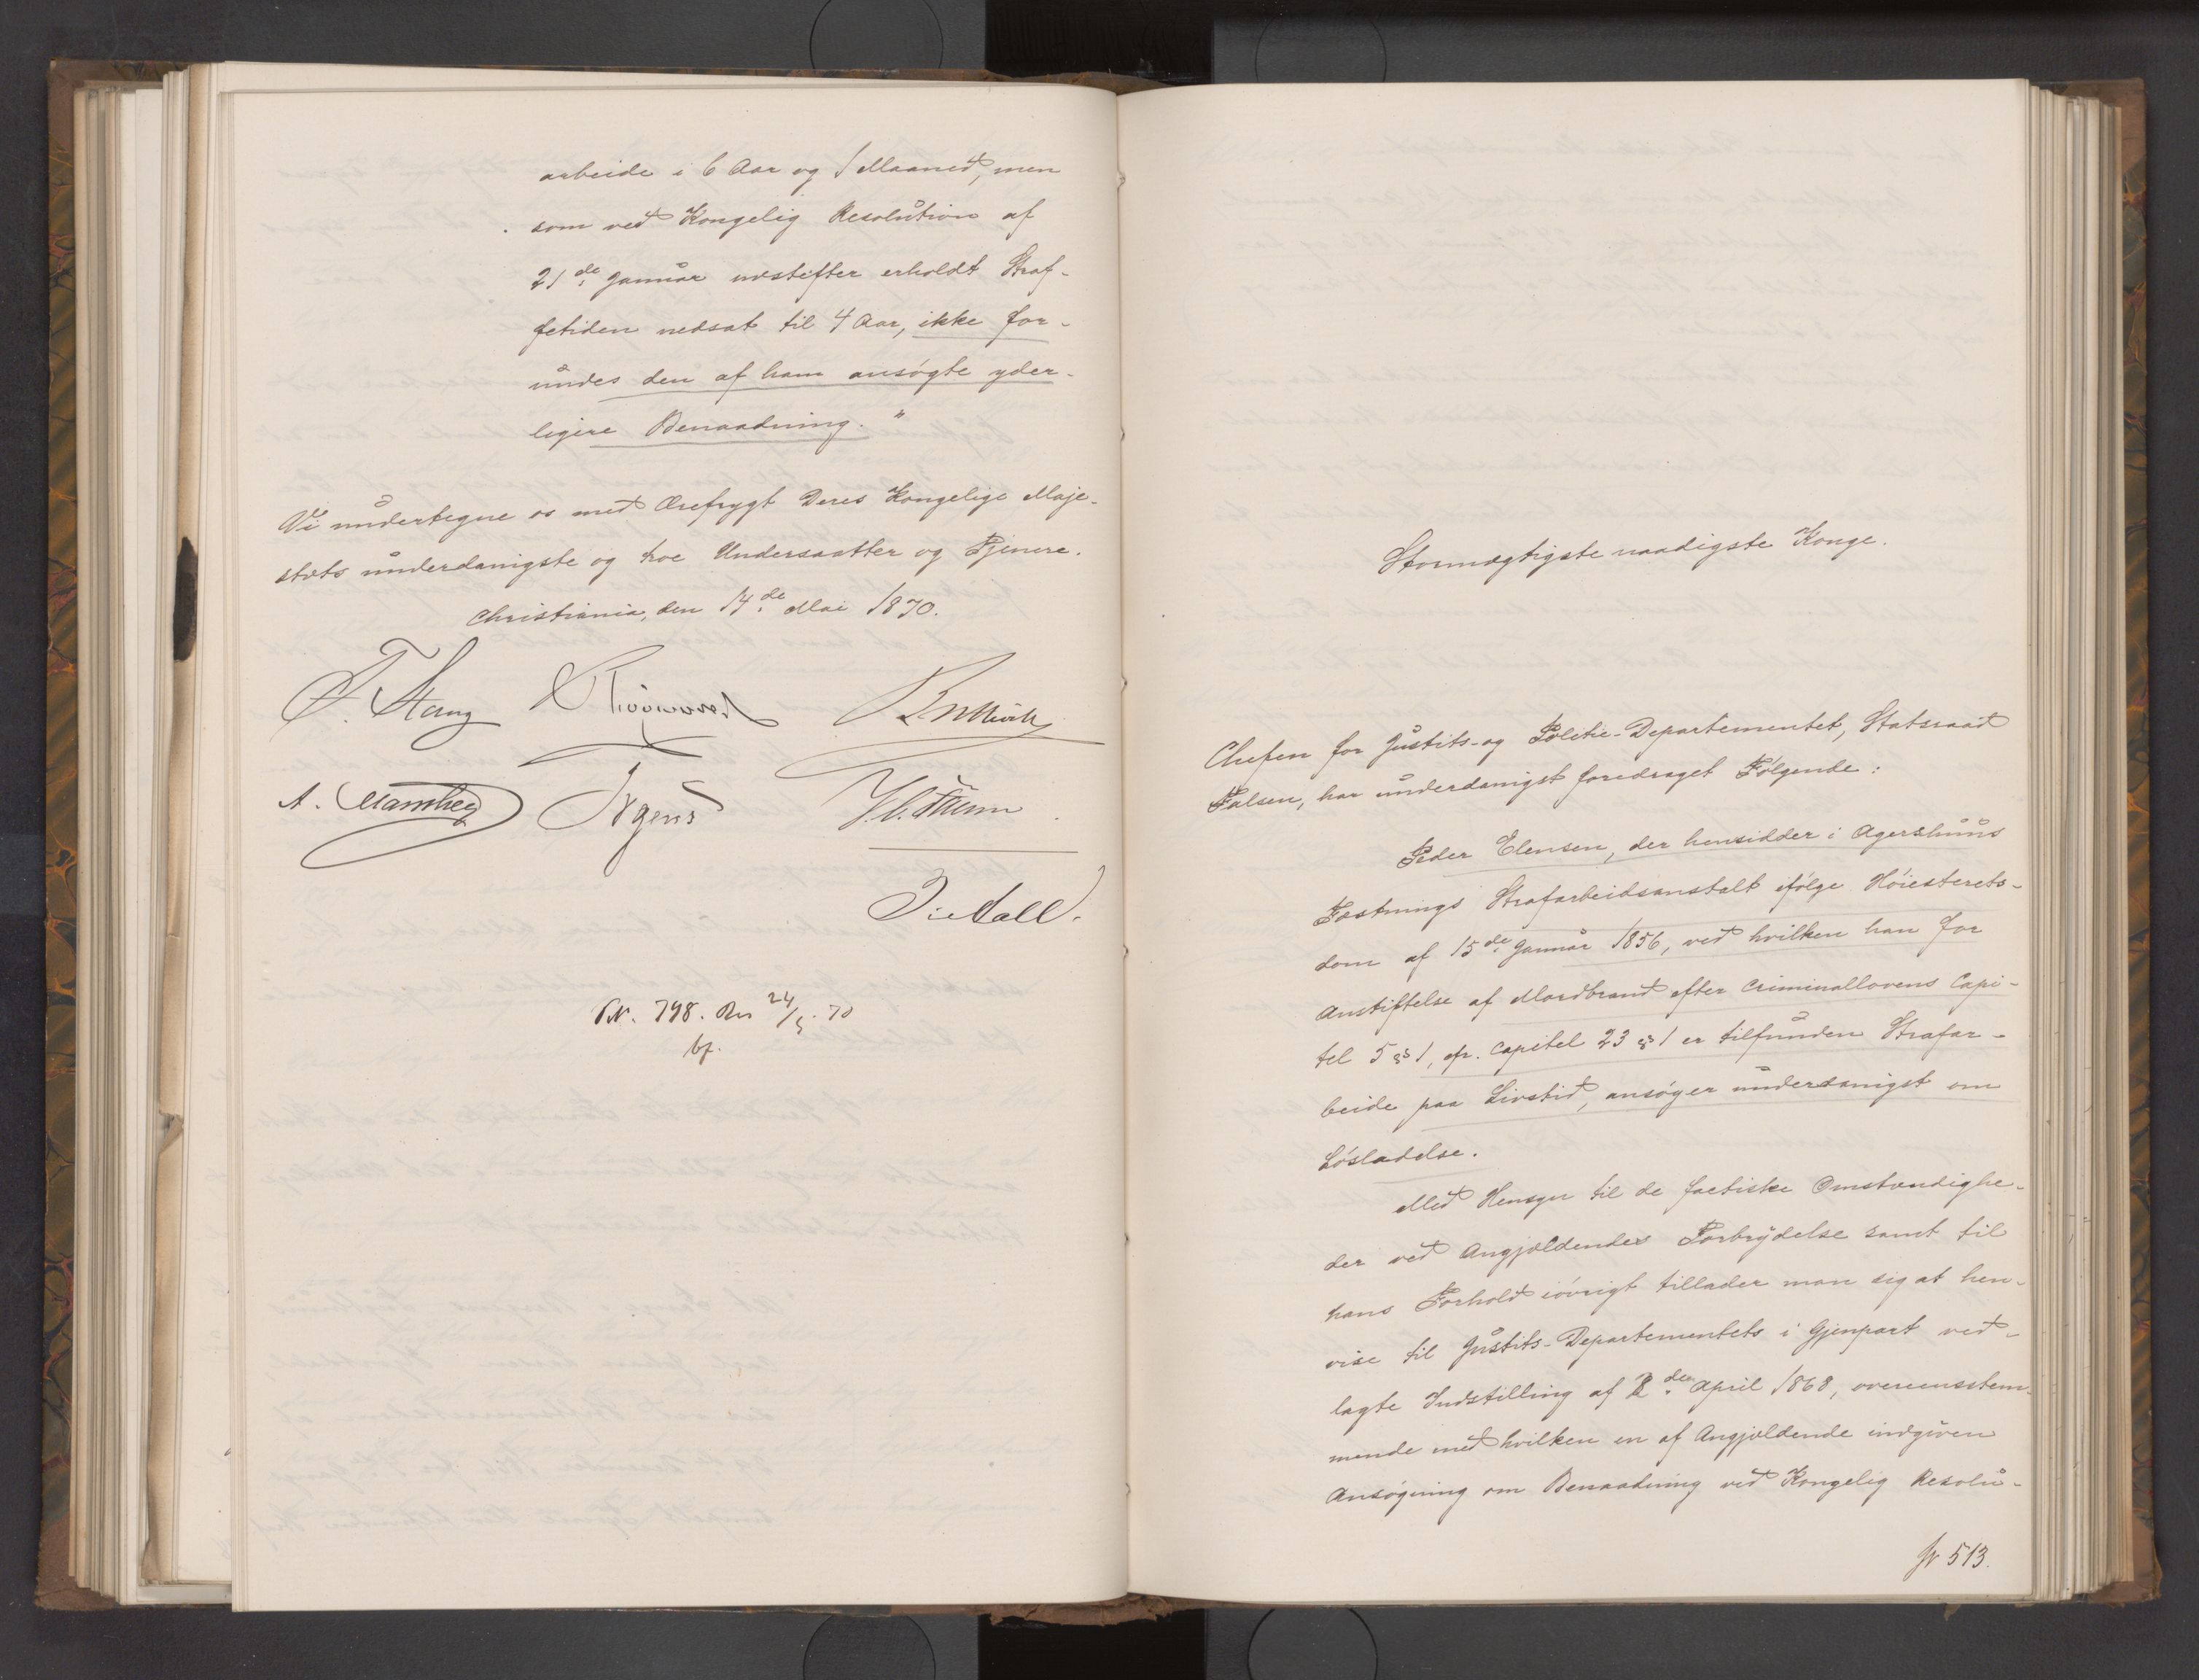 arbeide i 6 Aar og 1 Maaned, men
som ved Kongelig Resolution af
21de Januar udstifter erholdt Straf-
fetiden nedsat til 4 Aar, ikke for-
undes den af ham ansøgte yder-
ligere Benaadning."
Vi undertegne os med Ærefrygt Deres Kongelige Maje-
stæts underdanigste og troe Undersaatter og Tjenere.
Christiania, den 14de Mai 1870.
F. Stang
A. Manthey Irgens
J. Aall.
798. 24/5. 70
bf.
Stormægtigste naadigste Konge.
Chefen for Justits- og Politie-Departementet, Statsraad
Falsen, har underdanigst foredraget Følgende:
Peder Elensen, der hensidder i Agershuus
Fæstnings Strafarbeidsanstalt ifølge Høiesterets-
dom af 15de Januar 1856, ved hvilken han for
Anstiftelse af Mordbrand efter Criminallovens Capi-
tel 5 § 1, cfr. Capitel 23 § 1 er tilfunden Strafar-
beide paa Livstid, ansøger underdanigst om
Løsladelse.
Med Hensyn til de factiske Omstændighe-
der ved Angjældendes Forbrydelse samt til
hans Forhold iøvrigt tillader man sig at hen-
vise til Justits-Departementets i Gjenpart ved-
lagte Indstilling af 2den April 1868, overeensstem-
mende med hvilken en af Angjældende indgiven
Ansøgning om Benaadning ved Kongelig Resolu-
Jr 513.